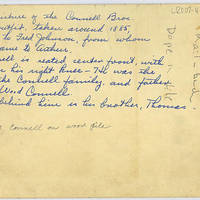 picture of the Connell Bros.
outfit, taken around 1885
to Fred Johnson, from whom
came to Arthur.
ell is seated center front, with
on his right knee - He was the
the Connell family, and father
Wood Connell.
behind him is his brother, Thomas
connell on wood pile
L2007-
Dope